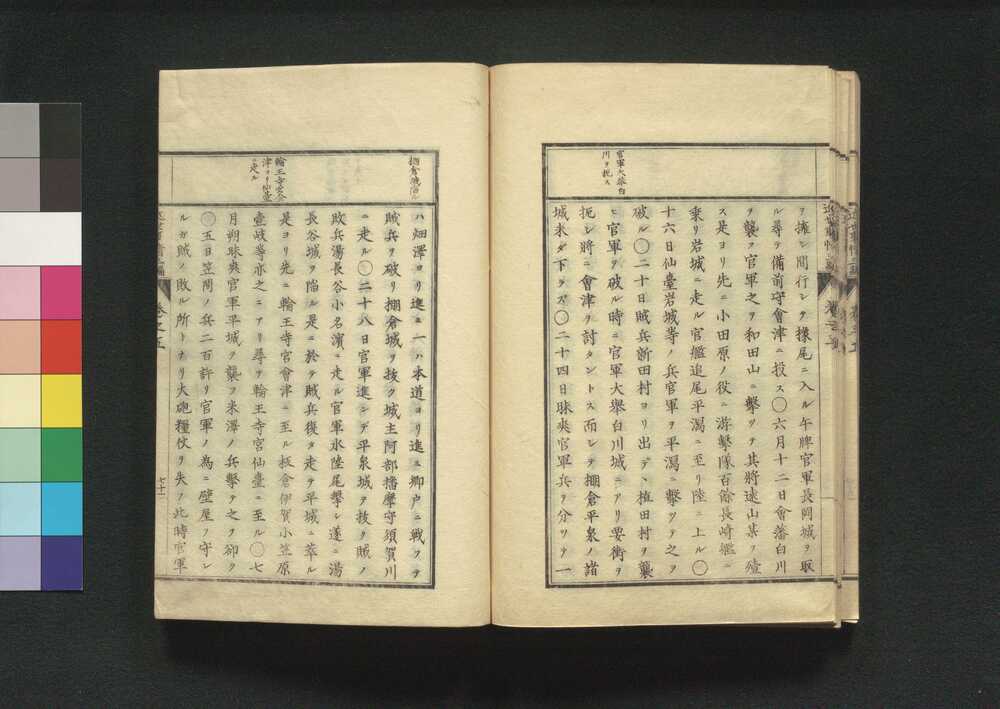 官軍大擧白
川ヲ扼ス
ヲ擁シ間行シテ橡尾ニ入ル午牌官軍長岡城ヲ取
ル尋テ備前守會津ニ投ス〇六月十二日會藩白川
ヲ襲フ官軍之ヲ和田山ニ擊ツテ其將遠山某ヲ殪
ス是ヨリ先ニ小田原ノ役ニ游擊隊百餘長崎艦ニ
乘リ岩城ニ走ル官艦追尾平瀉ニ至リ陸ニ上ル〇
十六日仙臺岩城等ノ兵官軍ヲ平瀉ニ擊ツテ之ヲ
破ル〇二十日賊兵新田村ヨリ出デヽ植田村ヲ襲
ヒ官軍ヲ破ル時ニ官軍大擧白川城ニアリ要衝ヲ
扼シ將ニ會津ヲ討タントス而シテ棚倉平泉ノ諸
城未タ下ラズ〇二十四日昧爽官軍兵ヲ分ツテ一
棚倉城陷ル
輪王寺宮會
津ヨリ仙臺
ニ走ル
ハ畑澤ヨリ進ミ一ハ本道ヨリ進ミ鄕戸ニ戰ヲテ
賊兵ヲ破リ棚倉城ヲ拔ク城主阿部播摩守須賀川
ニ走ル〇二十八日官軍進シデ平泉城ヲ拔ク賊ノ
敗兵湯長谷小名濱ニ走ル官軍水陸尾擊シ遂ニ湯
長谷城ヲ陷ル是ニ於テ賊兵復タ走ヲ平城ニ萃ル
是ヨリ先ニ輪王寺宮會津ニ至ル板倉伊賀小笠原
壹岐等亦之ニアリ尋ヲ輪王寺宮仙臺ニ至ル〇七
月朔昧爽官軍平城ヲ襲フ米澤ノ兵擊ヲ之ヲ卻ク
〇五日笠間ノ兵二百許リ官軍ノ為ニ壁屋ヲ守レ
ルガ賊ノ敗ル所トナリ大砲糧仗ヲ失フ此時官軍
卷之五
七十二